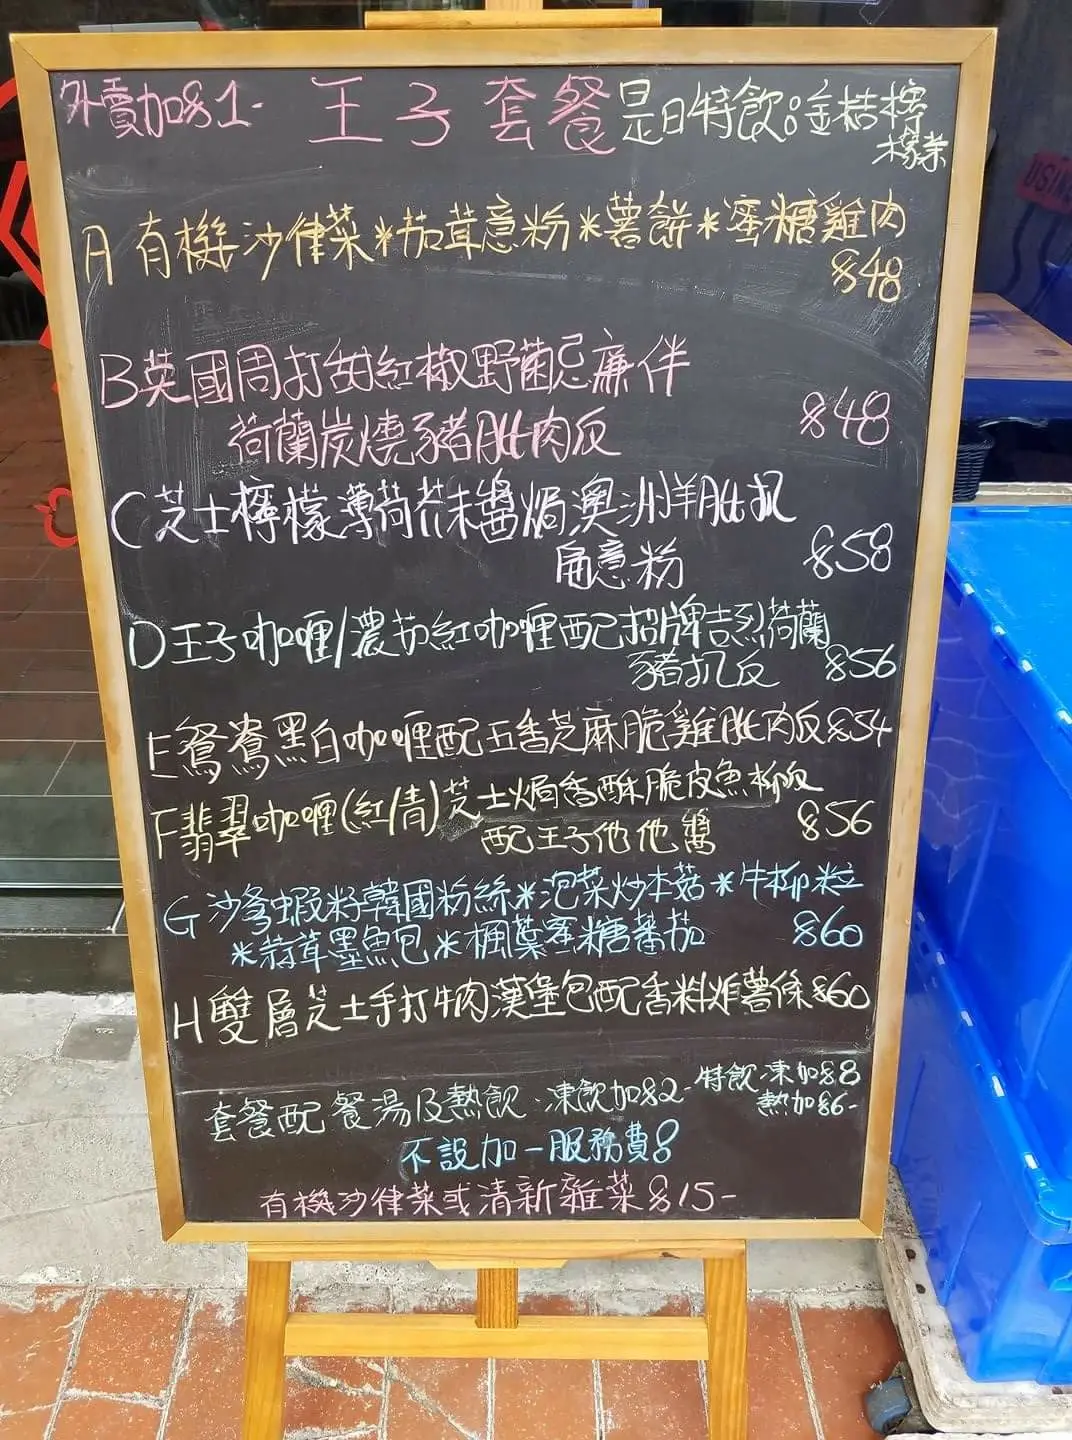 外賣加$1-
王子套餐
是日特飲:金桔檸檬茶
A 有機沙律菜*茄茸意粉*薯餅*蜜糖雞肉
$48
B英國周打甜紅椒野菌忌廉伴
荷蘭炭燒豬扒肉反
$48
C芝士檸檬薄荷芥末醬焗澳洲羊扒扒
扁意粉
$58
D王子咖喱/濃茄紅咖喱配招牌吉烈荷蘭
豬扒反
$56
E鴛鴦黑白咖喱配五香芝麻脆雞扒肉反$54
F翡翠咖喱(紅/青)芝士焗香酥脆皮魚柳反
配王子他他醬
$56
G沙爹蝦籽韓國粉絲*泡菜炒本菇*牛柳粒
*蒜茸墨魚包*楓葉蜜糖蕃茄
$60
H雙層芝士手打牛肉漢堡包配香料炸薯條$60
套餐配餐湯及熱飲·凍飲加$2-
特飲凍加$8
熱加$6-
不設加一服務費8
有機沙律菜或清新雜菜$15-